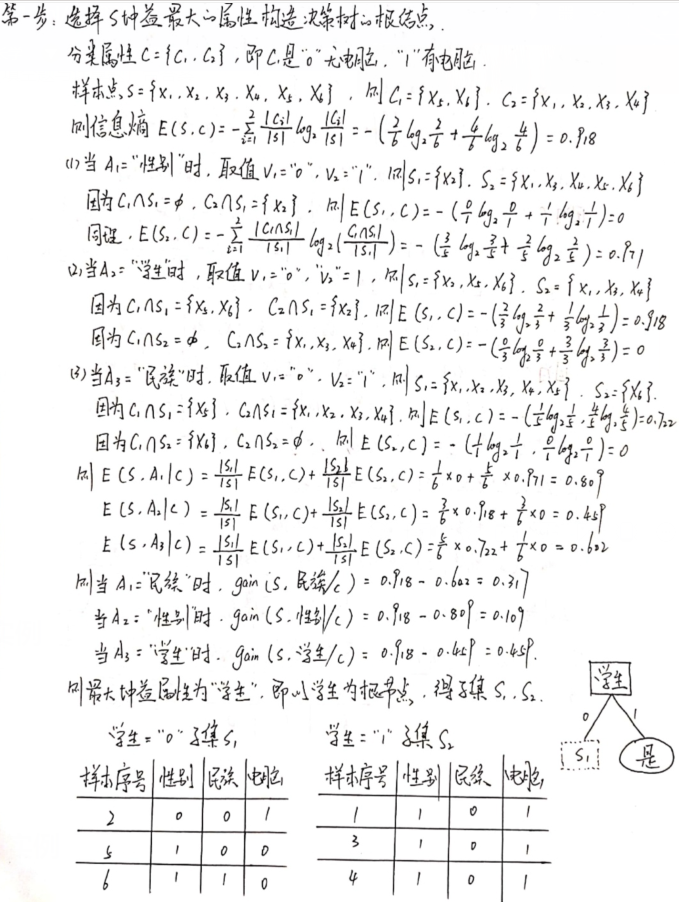 第一步：选择S增益最大的属性构造决策树的根结点．
分类属性C={C₁, C₂}，即C是"0"无电脑．"1"有电脑．
样本点S={X₁, X₂, X₃, X₄, X₅, X₆}，则C₁={X₅, X₆}．C₂={X₁, X₂, X₃, X₄}
则信息熵 E(S,C)=-∑²ᵢ₌₁ |Cᵢ|/|S| log₂ |Cᵢ|/|S| = -(2/6 log₂ 2/6 + 4/6 log₂ 4/6) = 0.918
(1)当A₁="性别"时．取值V₁="0"，V₂="1"．则S₁={X₂}．S₂={X₁, X₃, X₄, X₅, X₆}
因为C₁∩S₁=∅，C₂∩S₁={X₂}．则E(S₁,C)=-(0/1 log₂ 0/1 + 1/1 log₂ 1/1)=0
同理．E(S₂,C)=-∑²ᵢ₌₁ |C₁∩S₁|/|S₁| log₂(|C₁∩S₁|/|S₁|) = -(3/5 log₂ 3/5 + 2/5 log₂ 2/5)=0.971
(2)当A₂="学生"时，取值V₁="0"，"V₂"=1，则S₁={X₂, X₅, X₆}．S₂={X₁, X₃, X₄}
因为C₁∩S₁={X₅, X₆}．C₂∩S₁={X₂}．则E(S₁,C)=-(2/3 log₂ 2/3 + 1/3 log₂ 1/3)=0.918
因为C₁∩S₂=∅，C₂∩S₂={X₁, X₃, X₄}．则E(S₂,C)=-(0/3 log₂ 0/3 + 3/3 log₂ 3/3)=0
(3)当A₃="民族"时．取值V₁="0"．V₂="1"．则S₁={X₁, X₂, X₃, X₄, X₅}．S₂={X₆}．
因为C₁∩S₁={X₅}．C₂∩S₁={X₁, X₂, X₃, X₄}．则E(S₁,C)=-(1/5 log₂ 1/5, 4/5 log₂ 4/5)=0.722
因为C₁∩S₂={X₆}，C₂∩S₂=∅．则E(S₂,C)=-(1/1 log₂ 1/1, 0/1 log₂ 0/1)=0
则E(S,A₁|C)=|S₁|/|S| E(S₁,C)+|S₂|/|S| E(S₂,C)=1/6×0+5/6×0.971=0.809
E(S,A₂|C)=|S₁|/|S| E(S₁,C)+|S₂|/|S| E(S₂,C)=3/6×0.918+3/6×0=0.459
E(S,A₃|C)=|S₁|/|S| E(S₁,C)+|S₂|/|S| E(S₂,C)=5/6×0.722+1/6×0=0.602
则当A₁="民族"时．gain(S,民族/C)=0.918-0.602=0.317
当A₂="性别"时．gain(S,性别/C)=0.918-0.809=0.109
当A₃="学生"时．gain(S,学生/C)=0.918-0.459=0.459．
则最大增益属性为"学生"．即以学生为根节点，得子集S₁, S₂．
学生
0 1
S₁ 是
学生="0"子集S₁
样本序号 性别 民族 电脑
2 0 0 1
5 1 0 0
6 1 1 0
学生="1"子集S₂
样本序号 性别 民族 电脑
1 1 0 1
3 1 0 1
4 1 0 1